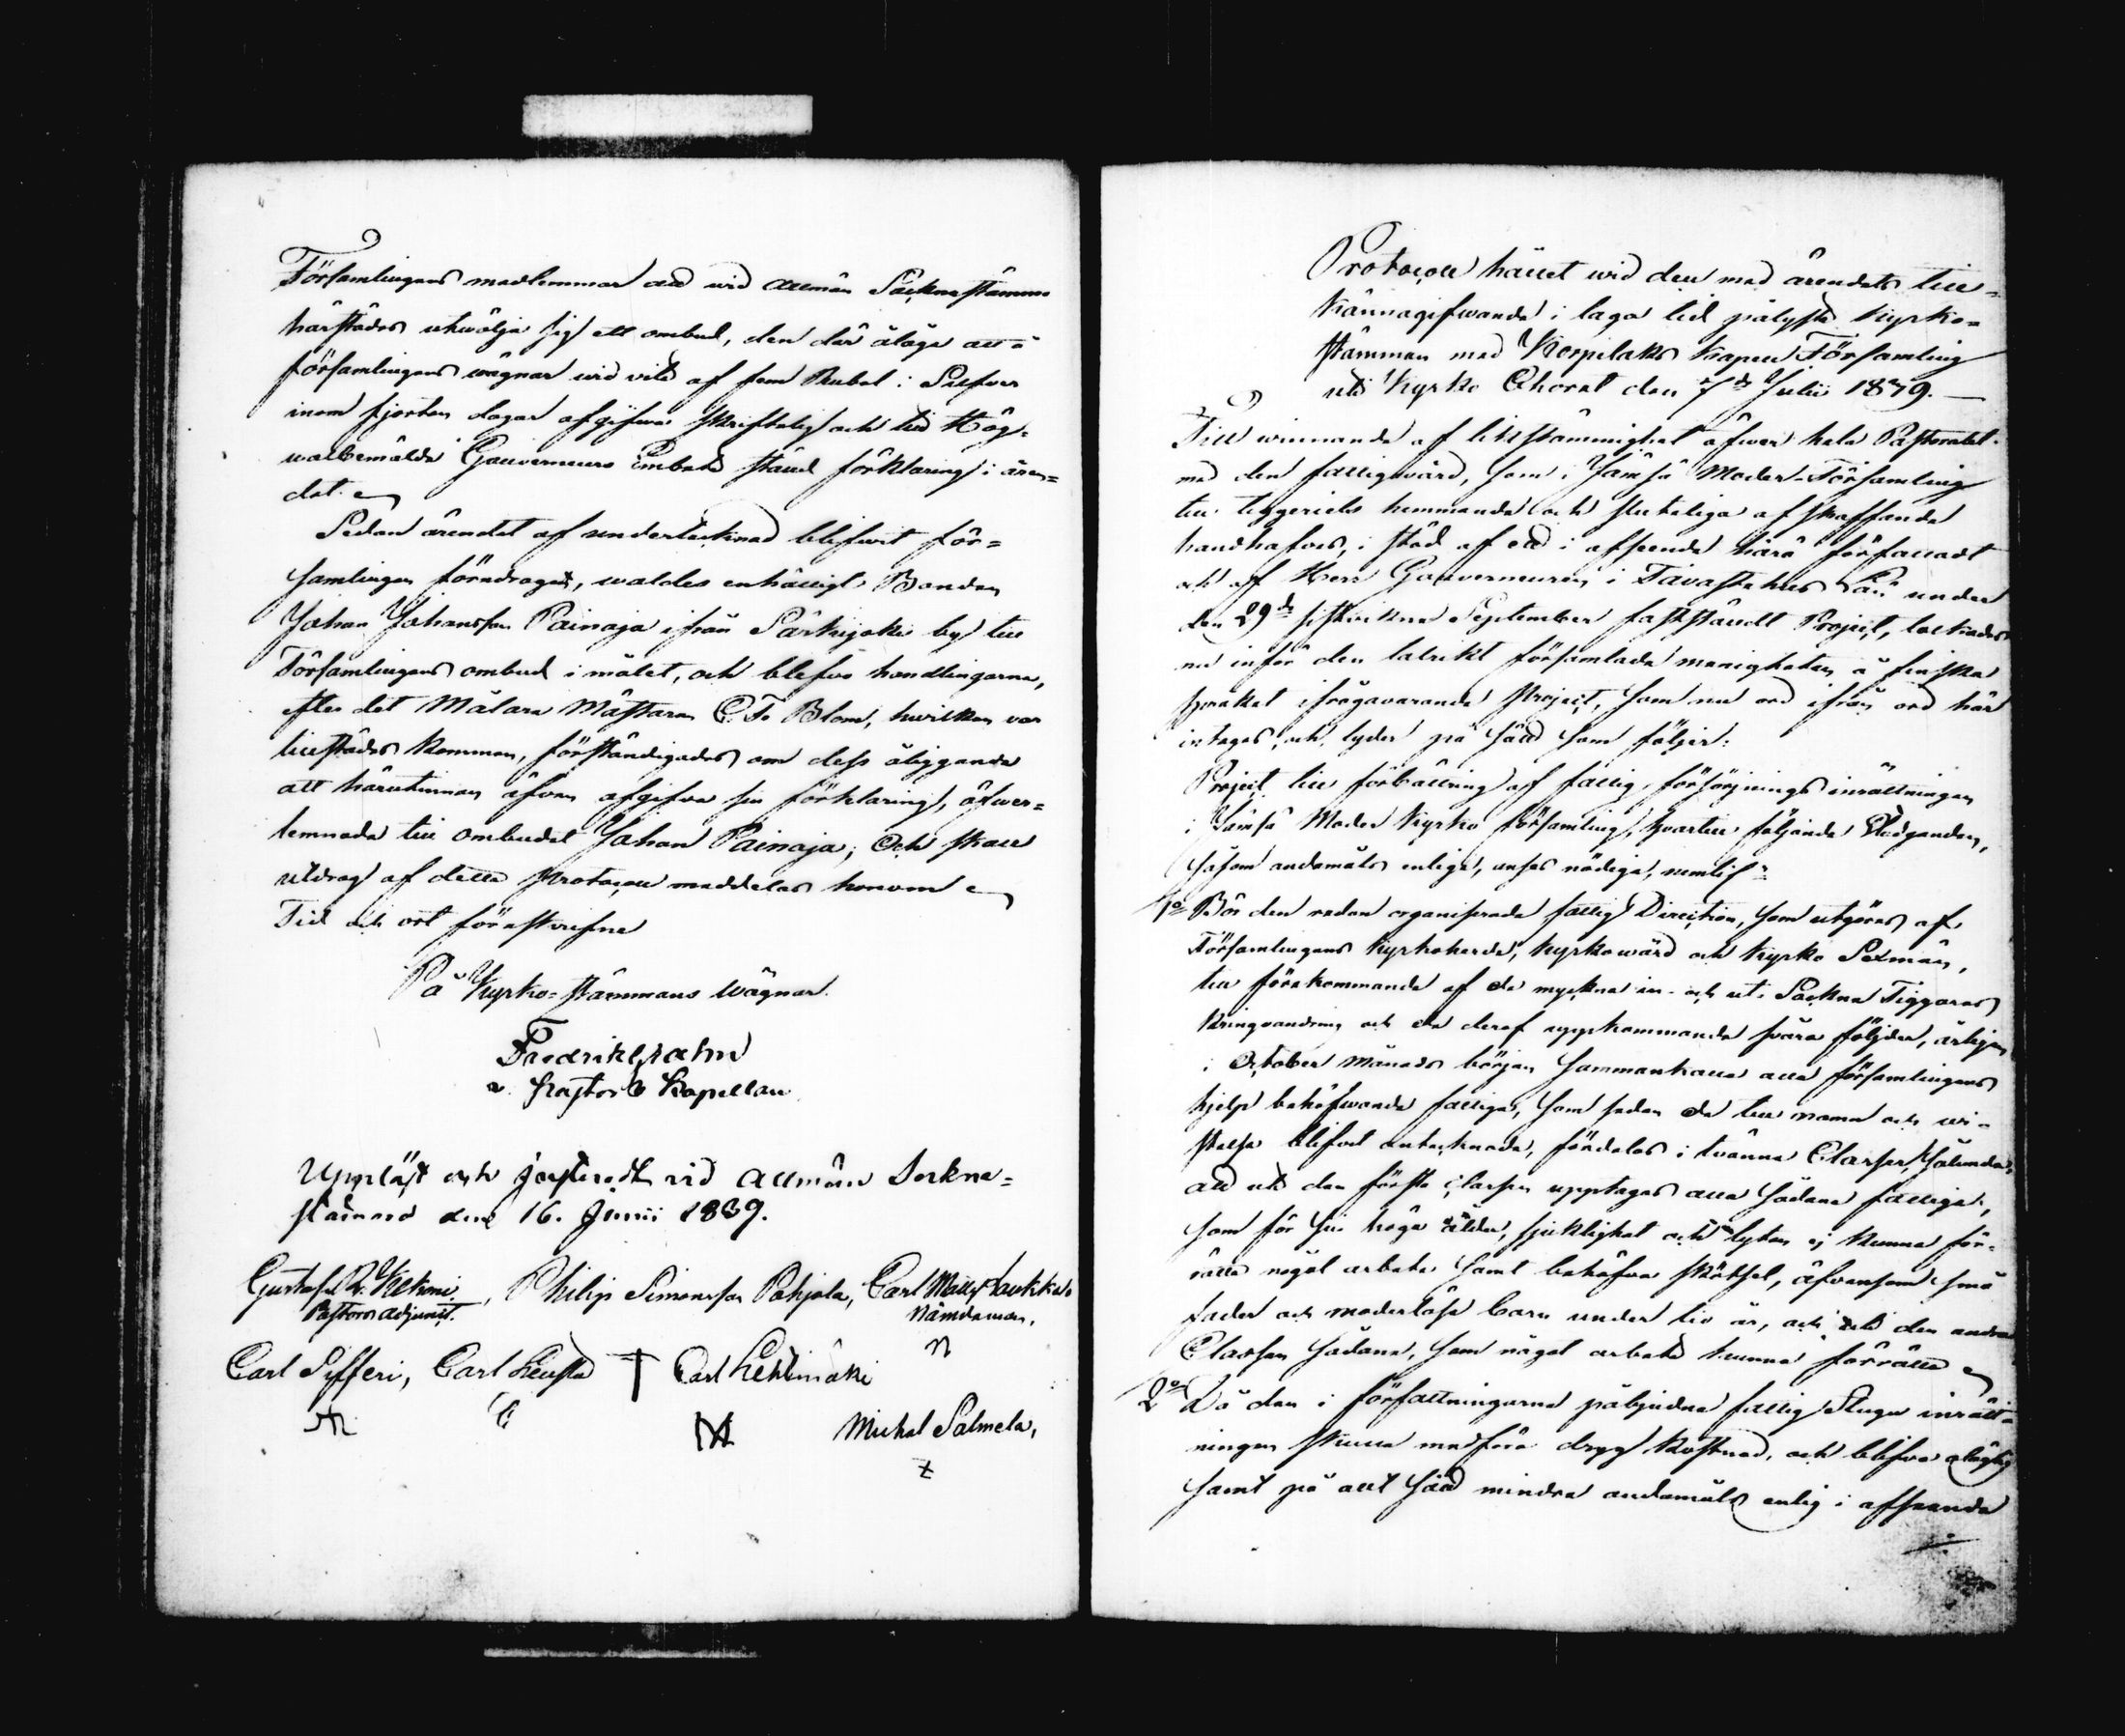 Församlingens medlemmar att wid allmän Säcknestämma
härstädes utwälja sig ett ombud, den där åläge att å
församlingens wägnar wid vite af fem Rubel i Silfver
inom fjorton dagar afgifwa skriftelig och till Hög-
walbemälde Gouverneurs Embete stäld förklaring i ären-
det.
Sedan ärendet af undertecknad blifwit för-
samlingen föredraget, waldes enhälligt Bonden
Johan Johansson Painaja ifrån Särkijoki by till
Församlingens ombud i målet, och blefwo handlingarne,
efter det Målare Mästaren C. F. Blom, hwilken var
tillstädes kommen, förständigades om dess åliggande
att härutinnan äfven afgifwa sin förklaring, öfwer-
lemnade till ombudet Johan Painaja; Och skall
utdrag af detta Protocoll meddelas honom
Tid och ort föreskrifne
På Kyrko-stämmans wägnar.
Fredrik Grahn
v. Pastor & Kapellan
Uppläst och justeradt vid allmän Sockne-
stämma den 16. Junii 1839.
Gustaf R. Kekoni, Philip Simonsson Pohjola, Carl Matts Laukka
Pastors adjunct. Nämdeman,
Carl Sifferi, Carl Heusta Carl Lehtimäki
Michel Salmela,
Protocoll hållet wid den med ärendets till-
kännagifwande i laga tid pålyste Kyrko-
stämman med Korpilaks Kapell Församling
uti Kyrko Choret den 7de Julii 1839.
Till winnande af likstämmighet öfwer hela Pastoratet
med den fattigwård, som i Jämsä Moder-Församling
till tiggeriets hemmande och slutliga afskaffande
handhafves, i stöd af ett i afseende härå författadt
och af Herr Gouverneuren i Tavastehus Län under
den 29de sistvikne September fastställdt Project, lästes
nu inför den talrikt församlade menigheten å finska
språket ifrågavarande Project, som nu ord ifrån ord här
intages, och lyder på sätt som följer:
Project till förbättring af fattig försörjnings inrättningen
i Jämsä Moder Kyrko församling, hvartill följande Stadganden,
såsom ändamåls enlige, anses nödige, nemlig:
1o Bör den redan organiserade fattig Direction, som utgöres af
Församlingens Kyrkoherde, Kyrkowärd och Kyrko Sexmän,
till förekommande af de myckna in- och ut- Sockne Tiggares
kringvandring och de deraf uppkommande svåra följder, årligen
i October månads början sammankalla alla församlingens
hjelp behöfwande fattiga, som sedan de till namn och wi-
stelse blifvit antecknade, fördelas i tvänne Classer, sålunda,
att uti den första classen upptages alla sådane fattiga,
som för sin höga ålder, sjuklighet och lyten ej kunna för-
rätta något arbete samt behöfva skötsel, äfvensom små
fader och moderlösa barn under tio år, och uti den andra
Classen sådane, som något arbete kunna förrätta
2o Då den i författningarne påbjudne fattig Stuge inrätt-
ningen skulle medföra dryg kostnad, och blifva olägligt
samt på allt sätt mindre ändamåls enlig i afseende